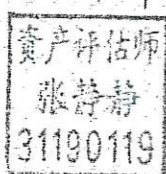 资产评估师
张静静
31190119